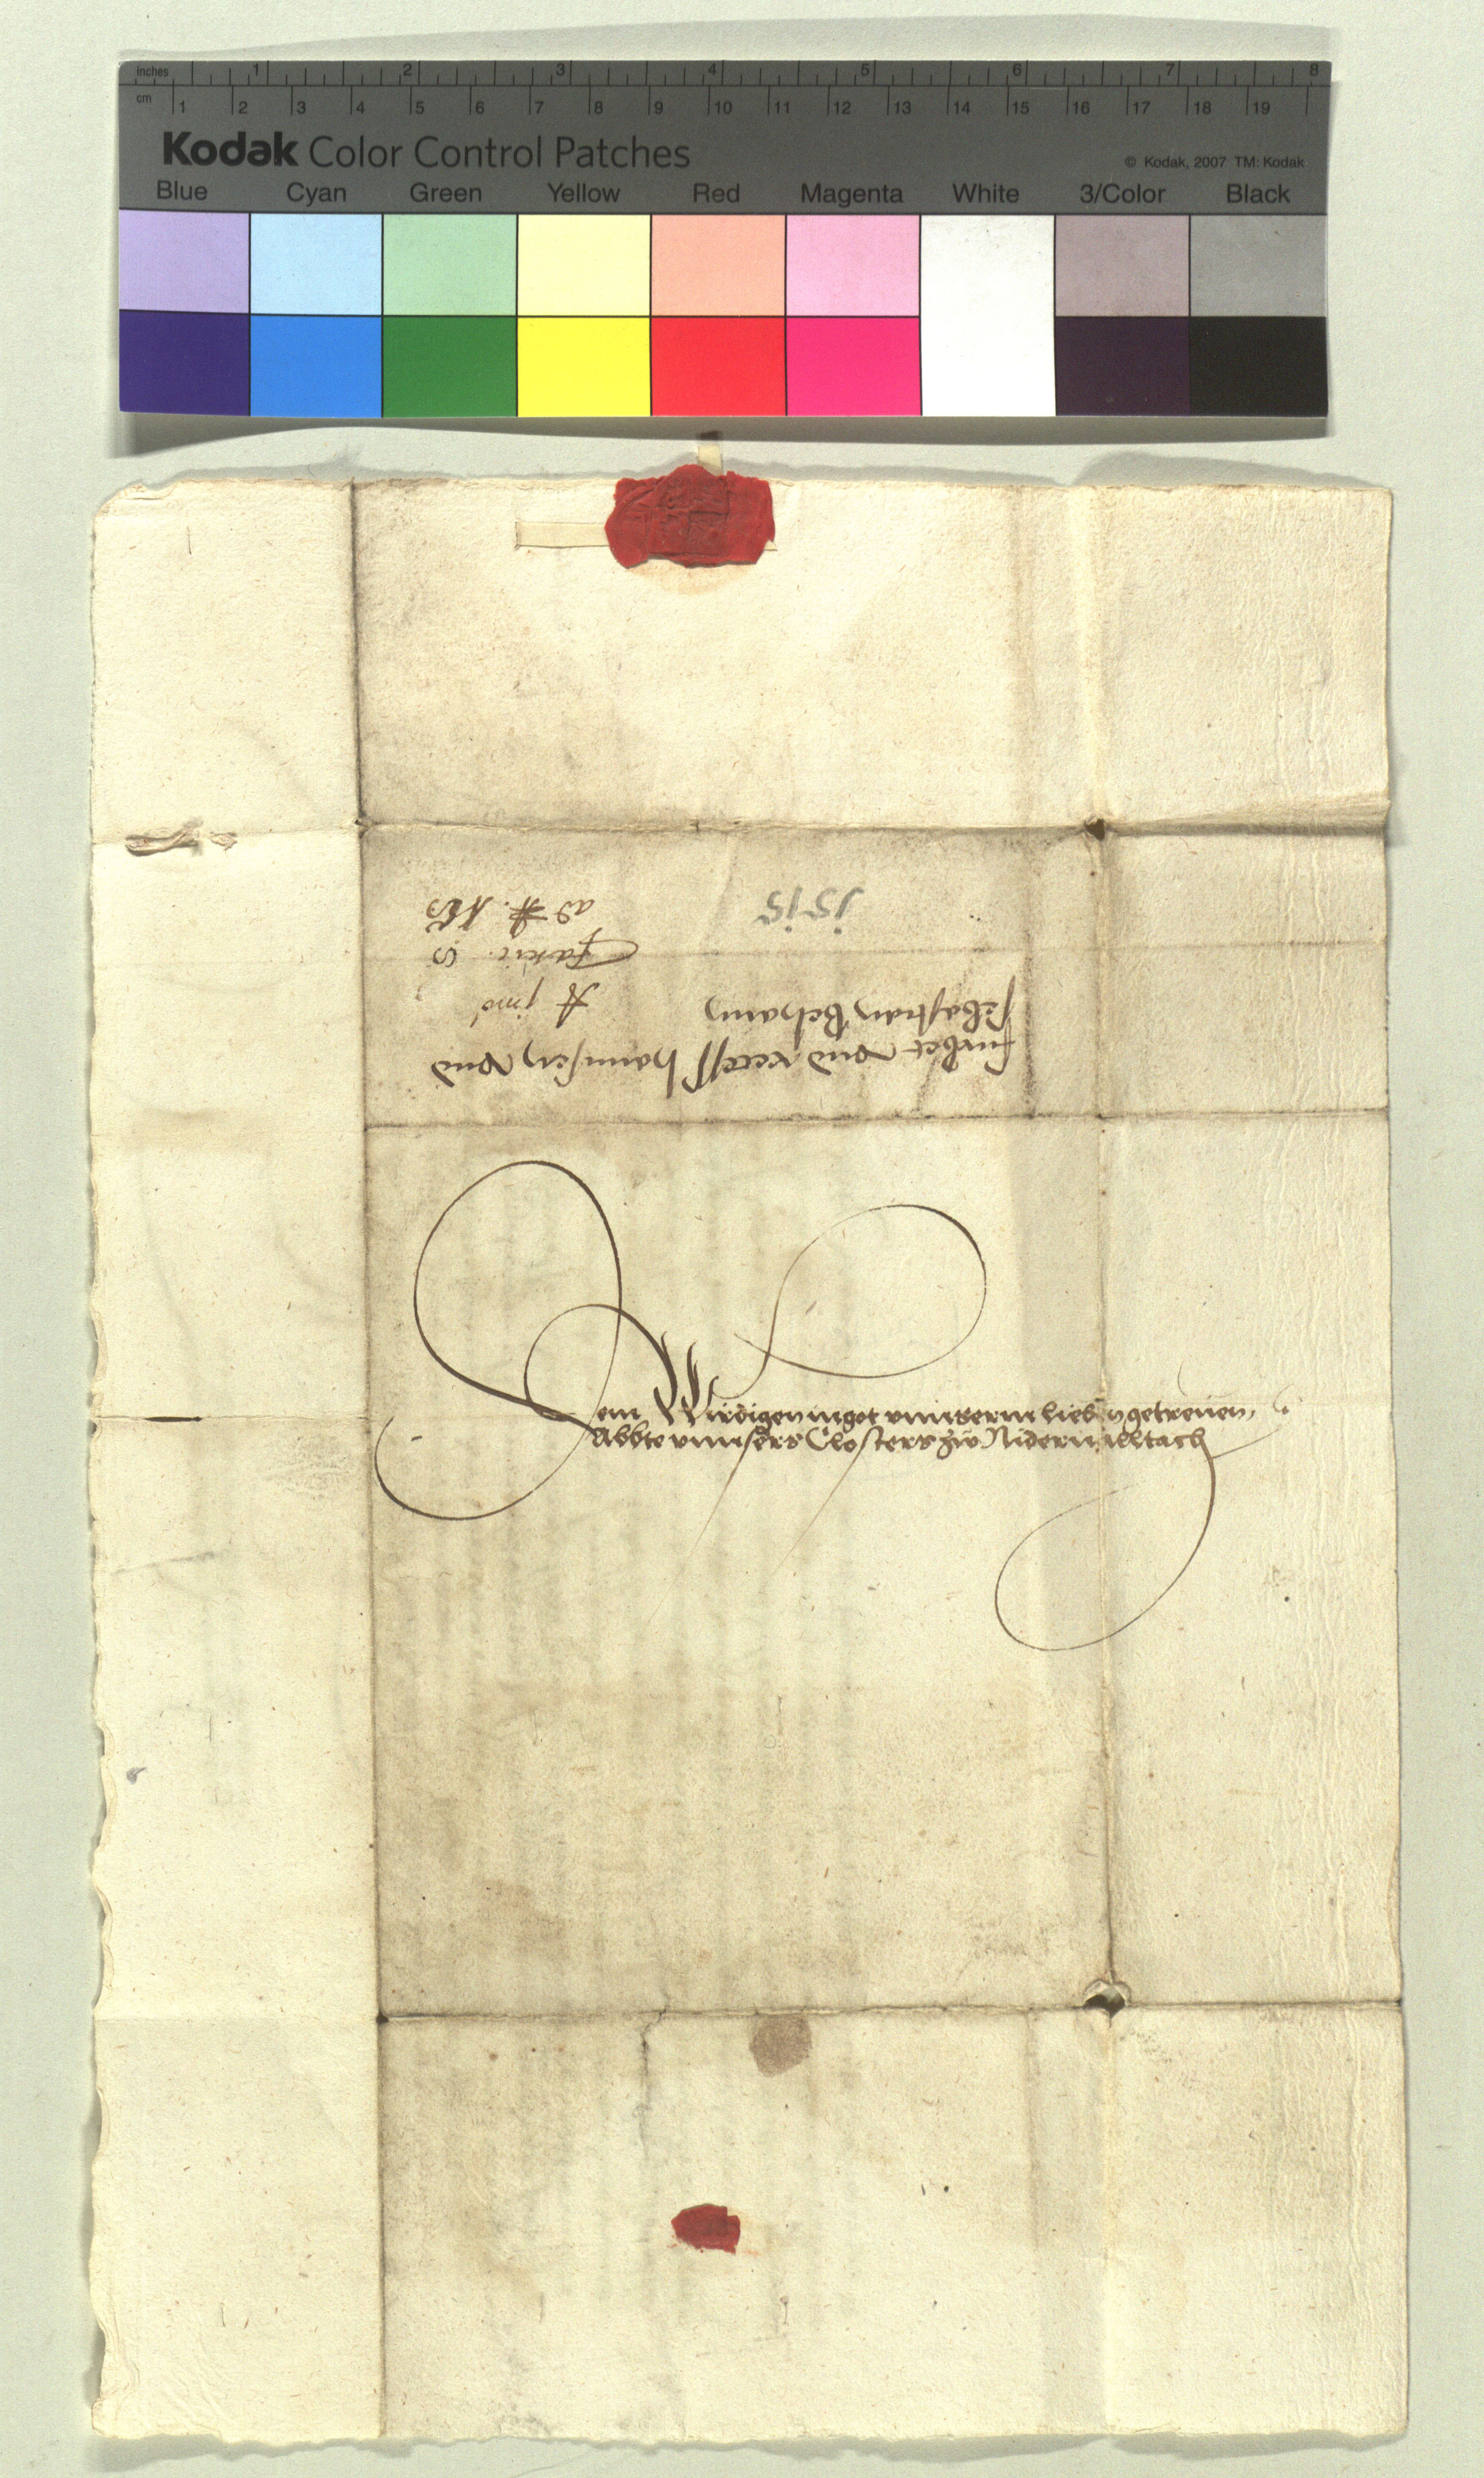 inches 1 2 3 4 5 6 7 8
cm 1 2 3 4 5 6 7 8 9 10 11 12 13 14 15 16 17 18 19
Kodak Color Control Patches
© Kodak, 2007 TM: Kodak
Blue Cyan Green Yellow Red Magenta White 3/Color Black
furbet vnd recess hannsen vnd
sebastian Behann
1515
Dem Wirdigen in got vnnserm lieben getreuen,
Abbte vnnsers Closters zw Nidernalltach